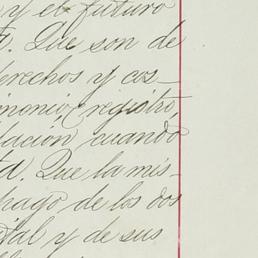 y el futuro
Que son de
erechos y cos-
imonio, registro,
lación cuando
ta. Que la mis-
pago de los dos
ital y de sus